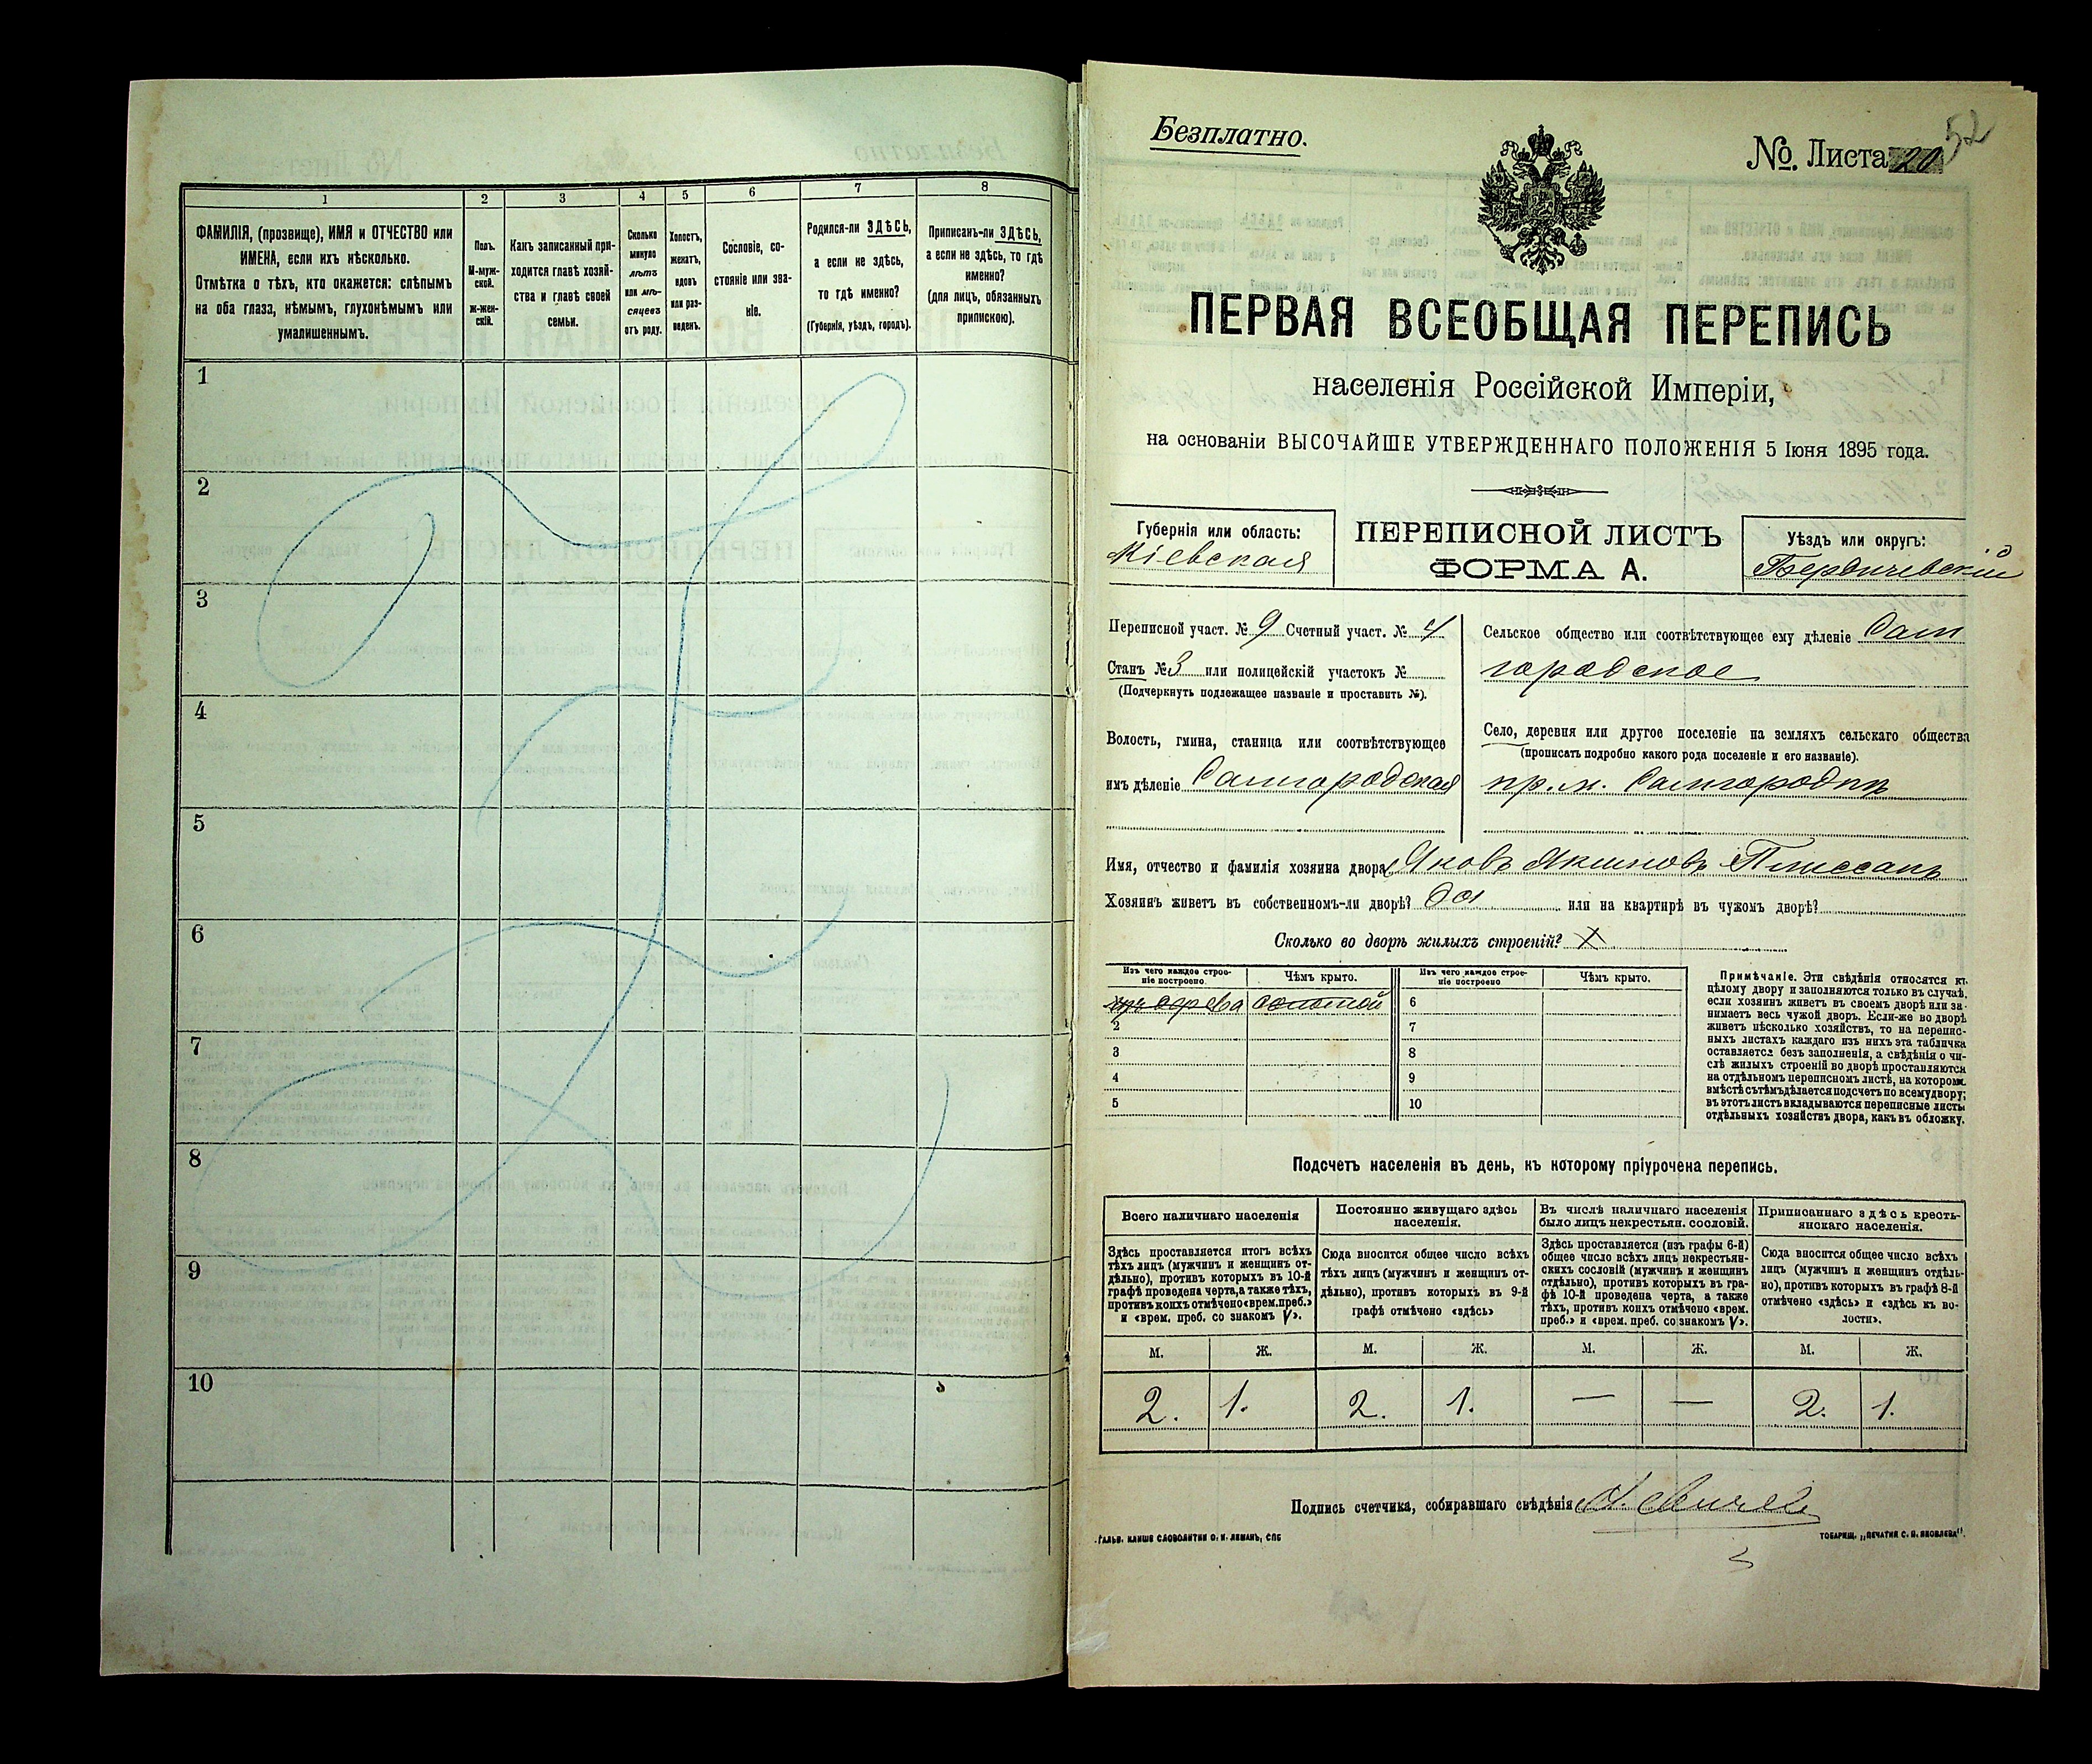 1 2 3 4 5 6 7 8
ФАМИЛІЯ, (прозвище), ИМЯ и ОТЧЕСТВО или
ИМЕНА, если ихъ нѣсколько.
Отмѣтка о тѣхъ, кто окажется: слѣпымъ
на оба глаза, нѣмымъ, глухонѣмымъ или
умалишеннымъ.
Полъ.
М-муж-
ской.
ж-жен-
скій.
Какъ записанный при-
ходится главѣ хозяй-
ства и главѣ своей
семьи.
Сколько
минуло
лѣтъ
или мѣ-
сяцевъ
отъ роду.
Холостъ,
женатъ,
вдовъ
или раз-
веденъ.
Сословіе, со-
стояніе или зва-
ніе.
Родился-ли ЗДѢСЬ,
а если не здѣсь,
то гдѣ именно?
(Губернія, уѣздъ, городъ).
Приписанъ-ли ЗДѢСЬ,
а если не здѣсь, то гдѣ
именно?
(для лицъ, обязанныхъ
припискою).
1
2
3
4
5
6
7
8
9
10
Безплатно.
№. Листа 20
52
ПЕРВАЯ ВСЕОБЩАЯ ПЕРЕПИСЬ
населенія Россійской Имперіи,
на основаніи ВЫСОЧАЙШЕ УТВЕРЖДЕННАГО ПОЛОЖЕНІЯ 5 Іюня 1895 года.
Губернія или область:
Кіевская
ПЕРЕПИСНОЙ ЛИСТЪ
ФОРМА А.
Уѣздъ или округъ:
Бердичевскій
Переписной участ. № 9 Счетный участ. № 4
Станъ № 3 или полицейскій участокъ №
(Подчеркнуть подлежащее названіе и проставить №).
Волость, гмина, станица или соотвѣтствующее
имъ дѣленіе Самгородская
Сельское общество или соотвѣтствующее ему дѣленіе Сам
городское
Село, деревня или другое поселеніе на земляхъ сельскаго общества
(прописать подробно какого рода поселеніе и его названіе).
пр. м. Самгородкѣ
Имя, отчество и фамилія хозяина двора Яковъ Якимовъ
Хозяинъ живетъ въ собственномъ-ли дворѣ? да или на квартирѣ въ чужомъ дворѣ?
Сколько во дворѣ жилыхъ строеній?
Изъ чего каждое строе-
ніе построено.
Чѣмъ крыто.
Изъ чего каждое строе-
ніе построено
Чѣмъ крыто.
изъ дерева соломой 6
2 7
3 8
4 9
5 10
Примѣчаніе. Эти свѣдѣнія относятся къ
цѣлому двору и заполняются только въ случаѣ,
если хозяинъ живетъ въ своемъ дворѣ или за-
нимаетъ весь чужой дворъ. Если-же во дворѣ
живетъ нѣсколько хозяйствъ, то на перепис-
ныхъ листахъ каждаго изъ нихъ эта табличка
оставляется безъ заполненія, а свѣдѣнія о чи-
слѣ жилыхъ строеній во дворѣ проставляются
на отдѣльномъ переписномъ листѣ, на которомъ
вмѣстѣ съ тѣмъ дѣлается подсчетъ по всему двору;
въ этотъ листъ вкладываются переписные листы
отдѣльныхъ хозяйствъ двора, какъ въ обложку.
Подсчетъ населенія въ день, къ которому пріурочена перепись.
Всего наличнаго населенія
Постоянно живущаго здѣсь
населенія.
Въ числѣ наличнаго населенія
было лицъ некрестьян. сословій.
Приписаннаго здѣсь кресть-
янскаго населенія.
Здѣсь проставляется итогъ всѣхъ
тѣхъ лицъ (мужчинъ и женщинъ от-
дѣльно), противъ которыхъ въ 10-й
графѣ проведена черта, а также тѣхъ,
противъ коихъ отмѣчено «врем. преб.»
и «врем. преб. со знакомъ V».
Сюда вносится общее число всѣхъ
тѣхъ лицъ (мужчинъ и женщинъ от-
дѣльно), противъ которыхъ въ 9-й
графѣ отмѣчено «здѣсь»
Здѣсь проставляется (изъ графы 6-й)
общее число всѣхъ лицъ некрестьян-
скихъ сословій (мужчинъ и женщинъ
отдѣльно), противъ которыхъ въ гра-
фѣ 10-й проведена черта, а также
тѣхъ, противъ коихъ отмѣчено «врем.
преб.» и «врем. преб. со знакомъ V».
Сюда вносится общее число всѣхъ
лицъ (мужчинъ и женщинъ отдѣль-
но), противъ которыхъ въ графѣ 8-й
отмѣчено «здѣсь» и «здѣсь въ во-
лости».
М. Ж. М. Ж. М. Ж. М. Ж.
2. 1. 2. 1. — — 2. 1.
Подпись счетчика, собиравшаго свѣдѣнія
ГАЛЬВ. КЛИШЕ СЛОВОЛИТНИ О. И. ЛЕМАНЪ, СПБ
ТОВАРИЩ. „ПЕЧАТНЯ С. П. ЯКОВЛЕВА".